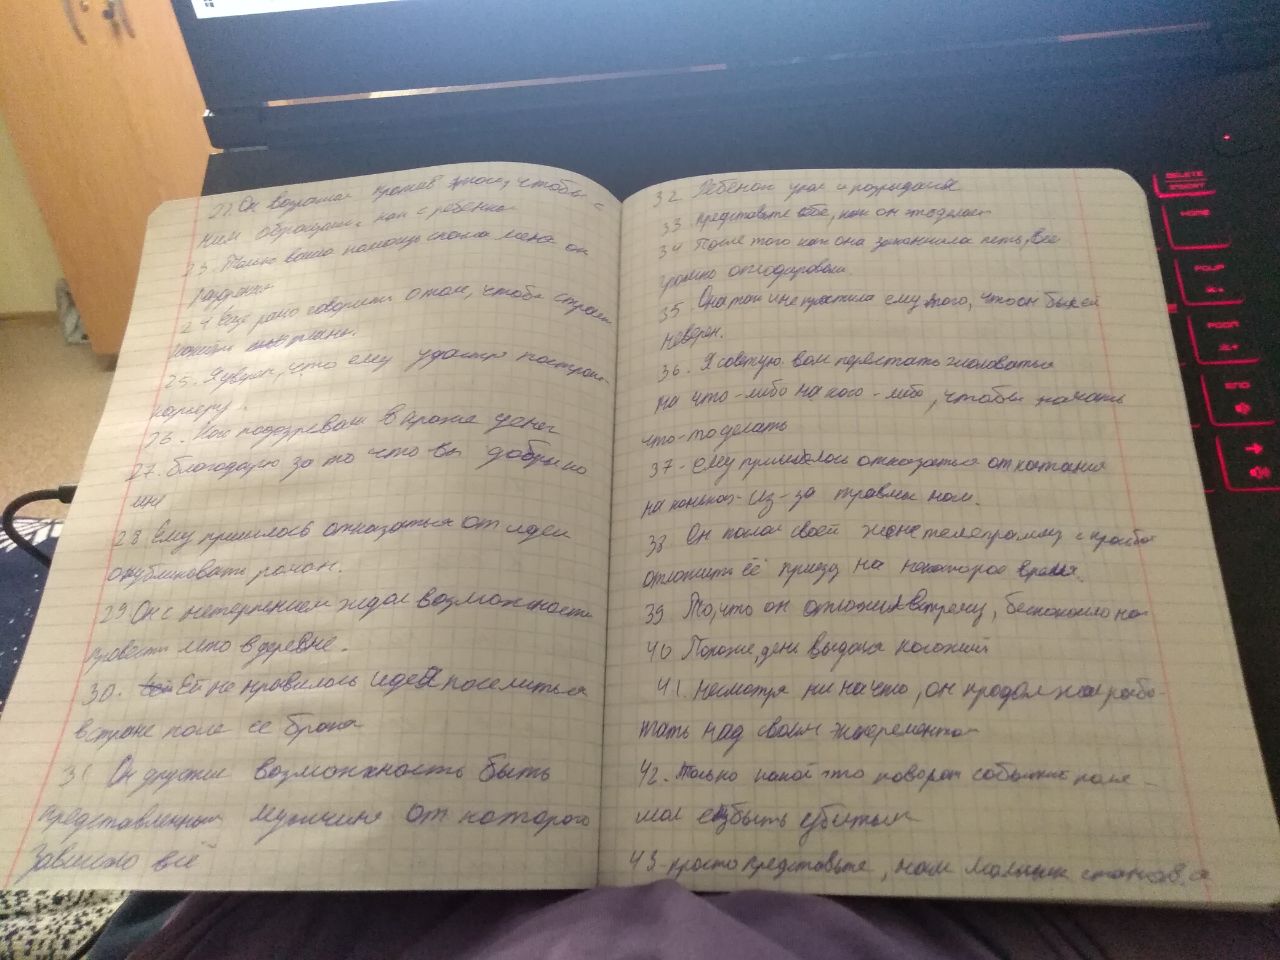 22. Он возражал против того, чтобы с
ним обращались как с ребёнком
23. Только ваша помощь спасла меня от
24 Ещё рано говорить о том, чтобы строить
25. Я уверен, что ему удастся построить
карьеру.
26. Его подозревали в краже денег
27. Благодарю за то что вы добры ко
мне
28. Ему пришлось отказаться от идеи
опубликовать роман.
29 Он с нетерпением ждал возможности
провести лето в деревне.
30. Ей не нравилось идея поселиться
в стране после её брака
31 Он возможность быть
представленным мужчине от которого
зависело всё
32 Ребёнок упал и разрыдался
33 представьте себе, как он это делает
34 После того как она закончила петь, все
громко аплодировали.
35. Она так и не простила ему того, что он был ей
неверен.
36. Я советую вам перестать жаловаться
на что-либо на кого-либо, чтобы начать
что-то делать
37. Ему пришлось отказаться от катания
на коньках из-за травмы ног.
38 Он послал своей жене телеграмму с просьбой
отложить её приезд на некоторое время.
39 То, что он отложил встречу, беспокоило нас
40 Похоже, день выдался хороший
41. несмотря ни на что, он продолжал рабо-
тать над своим экспериментом
42. только какой-то поворот событий
мог быть убитым
43. просто представьте, как мальчик
DELETE
INSERT
HOME
PGUP
PGDN
END